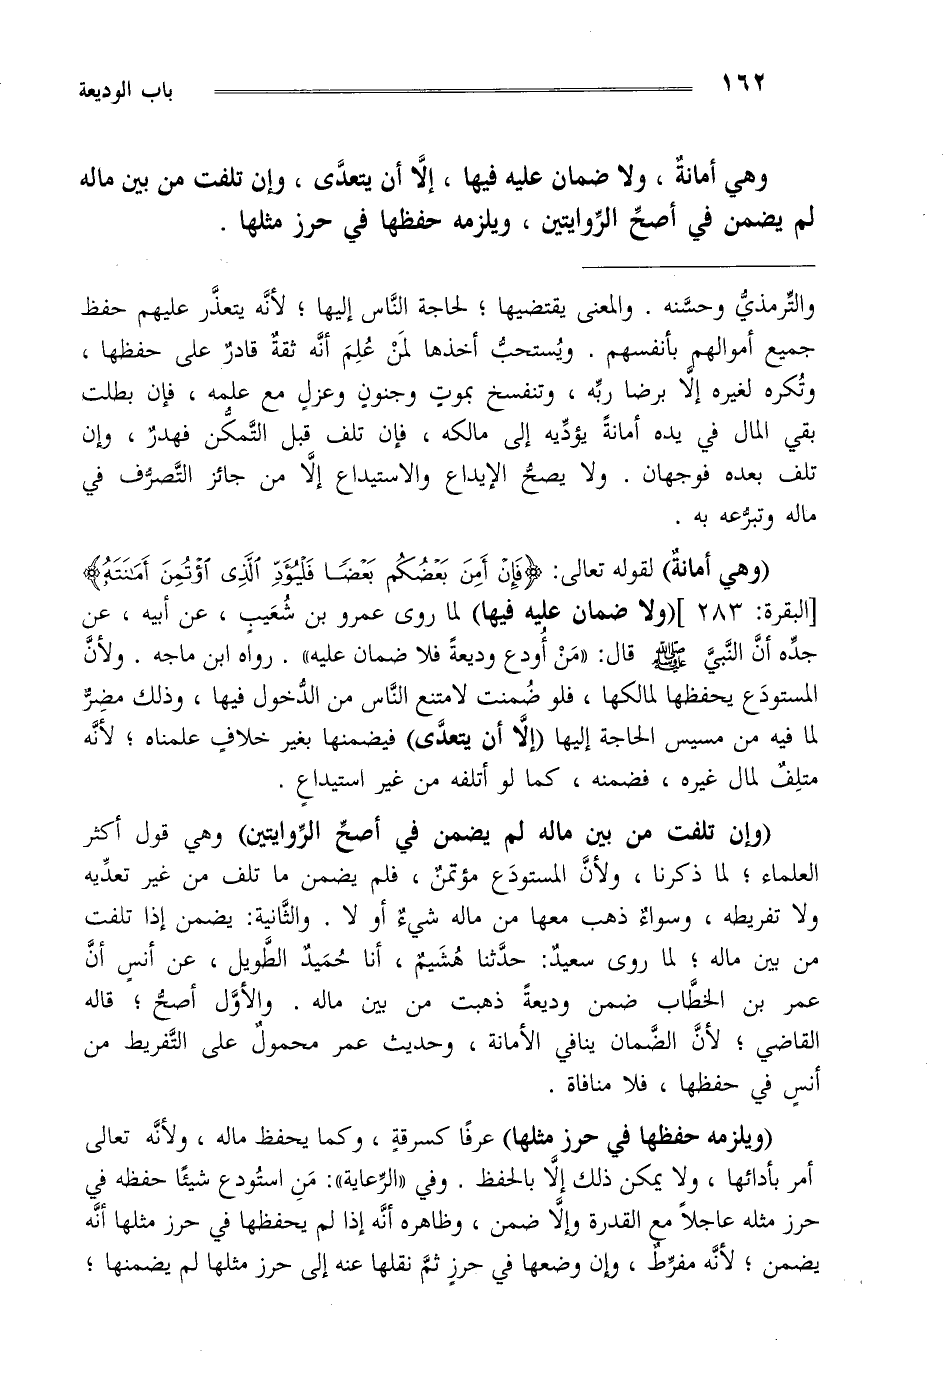 ١٦٢ باب الوديعة
وهي أمانةٌ ، ولا ضمان عليه فيها ، إلَّا أن يتعدَّى ، وإن تلفت من بين ماله
لم يضمن في أصحِّ الرِّوايتين ، ويلزمه حفظها في حرز مثلها .
والتِّرمذيُّ وحسَّنه . والمعنى يقتضيها ؛ لحاجة النَّاس إليها ؛ لأنَّه يتعذَّر عليهم حفظ
جميع أموالهم بأنفسهم . ويُستحبُّ أخذها لمَنْ عُلِمَ أنَّه ثقةٌ قادرٌ على حفظها ،
وتُكره لغيره إلَّا برضا ربِّه ، وتنفسخ بموتٍ وجنونٍ وعزلٍ مع علمه ، فإن بطلت
بقي المال في يده أمانةً يؤدِّيه إلى مالكه ، فإن تلف قبل التَّمكُّن فهدرٌ ، وإن
تلف بعده فوجهان . ولا يصحُّ الإيداع والاستيداع إلَّا من جائز التَّصرُّف في
ماله وتبرُّعه به .
(وهي أمانةٌ) لقوله تعالى: ﴿فَإِنْ أَمِنَ بَعْضُكُم بَعْضًا فَلْيُؤَدِّ ٱلَّذِى ٱؤْتُمِنَ أَمَـٰنَتَهُۥ﴾
[البقرة: ٢٨٣ ](ولا ضمان عليه فيها) لما روى عمرو بن شُعَيبٍ ، عن أبيه ، عن
جدِّه أنَّ النَّبيَّ ﷺ قال: «مَنْ أُودع وديعةً فلا ضمان عليه» . رواه ابن ماجه . ولأنَّ
المستودَع يحفظها لمالكها ، فلو ضُمنت لامتنع النَّاس من الدُّخول فيها ، وذلك مضِرٌّ
لما فيه من مسيس الحاجة إليها (إلَّا أن يتعدَّى) فيضمنها بغير خلافٍ علمناه ؛ لأنَّه
متلِفٌ لمال غيره ، فضمنه ، كما لو أتلفه من غير استيداعٍ .
(وإن تلفت من بين ماله لم يضمن في أصحِّ الرِّوايتين) وهي قول أكثر
العلماء ؛ لما ذكرنا ، ولأنَّ المستودَع مؤتمنٌ ، فلم يضمن ما تلف من غير تعدِّيه
ولا تفريطه ، وسواءٌ ذهب معها من ماله شيءٌ أو لا . والثَّانية: يضمن إذا تلفت
من بين ماله ؛ لما روى سعيدٌ: حدَّثنا هُشَيمٌ ، أنا حُمَيدٌ الطَّويل ، عن أنسٍ أنَّ
عمر بن الخطَّاب ضمن وديعةً ذهبت من بين ماله . والأوَّل أصحُّ ؛ قاله
القاضي ؛ لأنَّ الضَّمان ينافي الأمانة ، وحديث عمر محمولٌ على التَّفريط من
أنسٍ في حفظها ، فلا منافاة .
(ويلزمه حفظها في حرز مثلها) عرفًا كسرقةٍ ، وكما يحفظ ماله ، ولأنَّه تعالى
أمر بأدائها ، ولا يمكن ذلك إلَّا بالحفظ . وفي «الرِّعاية»: مَنِ استُودع شيئًا حفظه في
حرز مثله عاجلاً مع القدرة وإلَّا ضمن ، وظاهره أنَّه إذا لم يحفظها في حرز مثلها أنَّه
يضمن ؛ لأنَّه مفرِّطٌ ، وإن وضعها في حرزٍ ثمَّ نقلها عنه إلى حرز مثلها لم يضمنها ؛